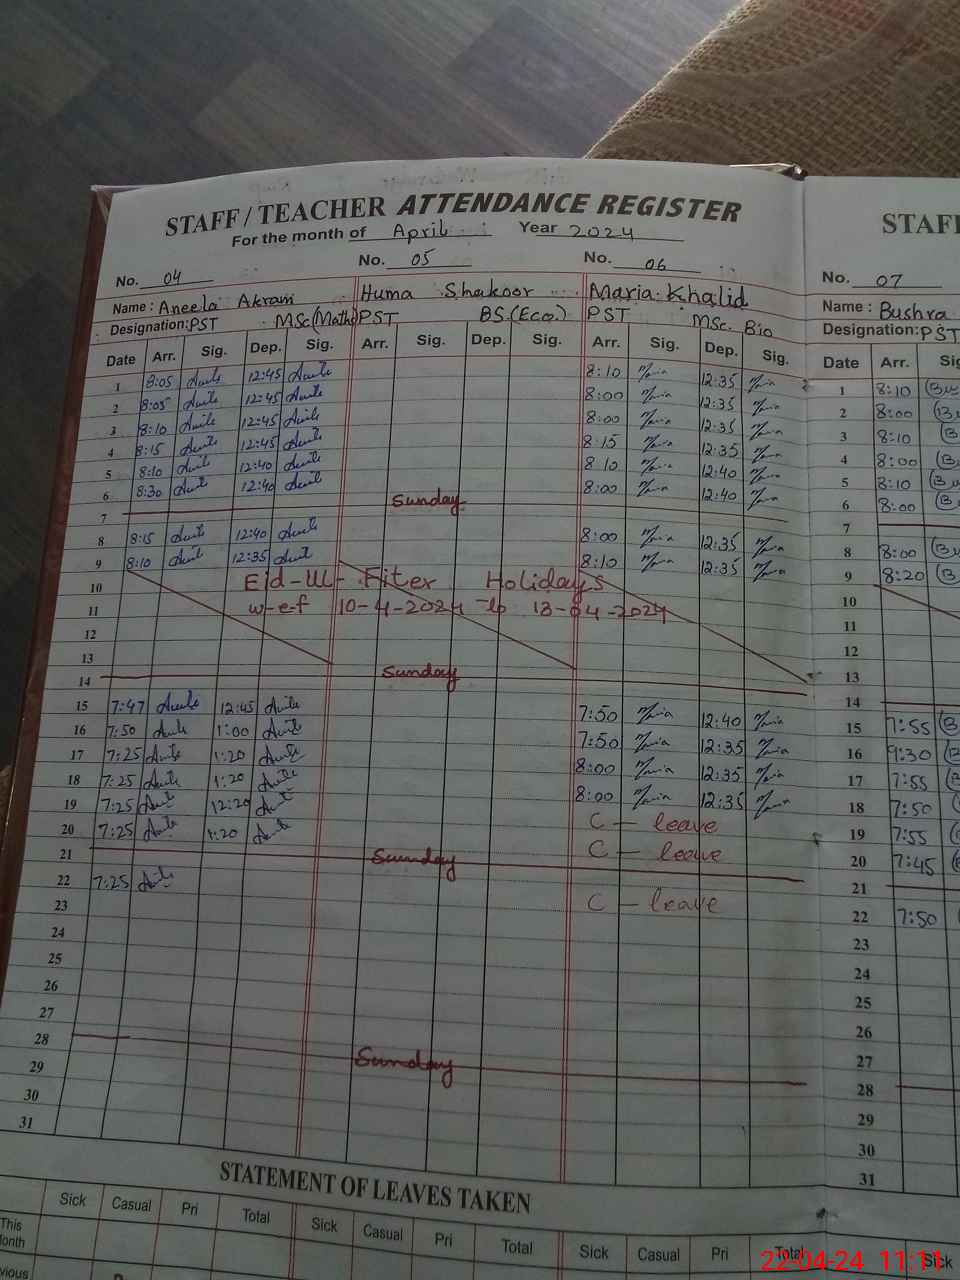 STAFF / TEACHER ATTENDANCE REGISTER STAFF
For the month of April Year 2024
No. 04 No. 05 No. 06 No. 07
Name : Aneela Akram Huma Shakoor Maria Khalid Name : Bushra
Designation: PST MSc(Math) PST BS.(Eco.) PST MSc. Bio Designation: PST
Date Arr. Sig. Dep. Sig. Arr. Sig. Dep. Sig. Arr. Sig. Dep. Sig. Date Arr.
1 8:05 12:45 8:10 12:35 1 8:10
2 8:05 12:45 8:00 12:35 2 8:00
3 8:10 12:45 8:00 12:35 3 8:10
4 8:15 12:45 8:15 12:35 4 8:00
5 8:10 12:40 8 10 12:40 5 8:10
6 8:30 12:40 8:00 12:40 6 8:00
7 Sunday 7
8 8:15 12:40 8:00 12:35 8 8:00
9 8:10 12:35 8:10 12:35 9 8:20
10 Eid-Ul-Fiter Holidays 10
11 w-e-f 10-4-2024 to 13-04-2024 11
12 12
13 13
14 Sunday 14
15 7:47 12:45 7:50 12:40 15 7:55
16 7:50 1:00 7:50 12:35 16 9:30
17 7:25 1:20 8:00 12:35 17 7:55
18 7:25 1:20 8:00 12:35 18 7:50
19 7:25 12:20 C - leave 19 7:55
20 7:25 1:20 C - leave 20 7:45
21 Sunday 21
22 7:25 C - leave 22 7:50
23 23
24 24
25 25
26 26
27 27
28 Sunday 28
29 29
30 30
31 31
STATEMENT OF LEAVES TAKEN
Sick Casual Pri Total Sick Casual Pri Total Sick Casual Pri Total Sick
This Month
22-04-24 11:11